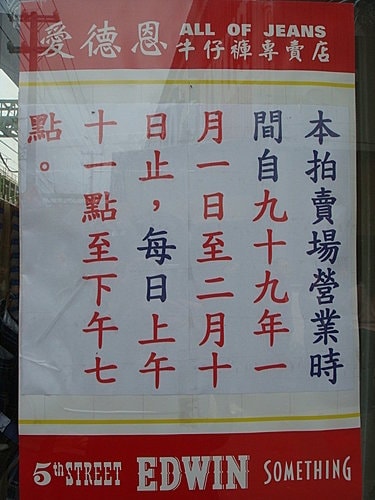 愛德恩
ALL OF JEANS
牛仔褲專賣店
本拍賣場營業時
間自九十九年一
月一日至二月十
日止，每日上午
十一點至下午七
點。
5th STREET EDWIN SOMETHING